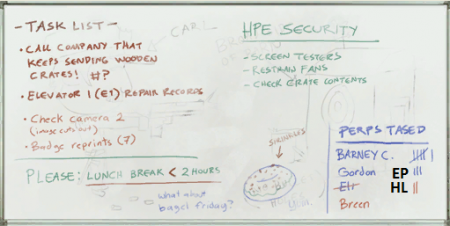 - TASK LIST -
• CALL COMPANY THAT
KEEPS SENDING WOODEN
CRATES! #?
• ELEVATOR 1 (E1) REPAIR RECORDS
• Check camera 2
(image cuts out)
• Badge reprints (7)
PLEASE: LUNCH BREAK < 2 HOURS
what about
bagel friday?
CARL
HPE SECURITY
- SCREEN TESTERS
- RESTRAIN FANS
- CHECK CRATE CONTENTS
PERPS TASED
BARNEY C.
Gordon
Eli
Breen
EP
HL